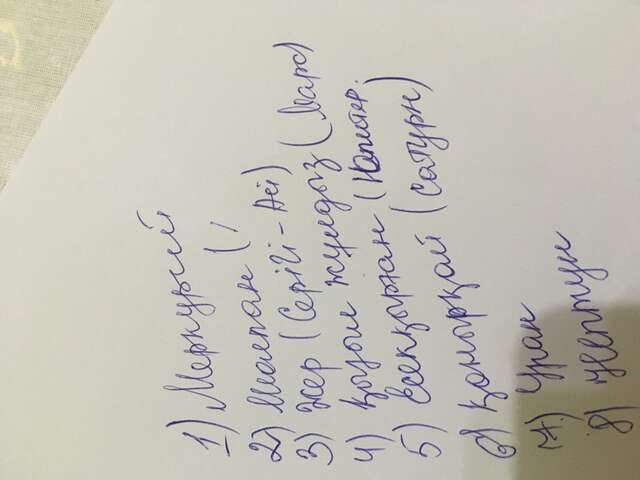 1) Меркурий
2) Шолпан (
3) Жер (Серігі - Ай)
4) қызыл жұлдыз (Марс)
5) Есекқырған (Юпитер.
6) Қоңырқай (Сатурн)
7) Уран
8) Нептун